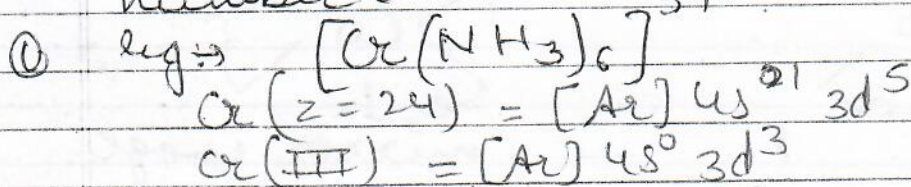 ① eg ⇒ [Cr(NH₃)₆]³⁺
Cr (z = 24) = [Ar] 4s¹ 3d⁵
Cr (III) = [Ar] 4s⁰ 3d³